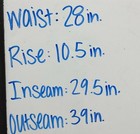 Waist: 28in.
Rise: 10.5in.
Inseam: 29.5in.
Outseam: 39in.